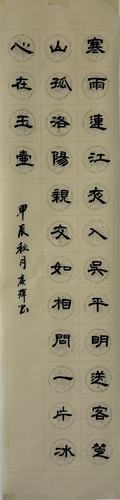 寒雨連江夜入吳平明送客楚
山孤洛陽親友如相問一片冰
心在玉壺
甲辰秋月